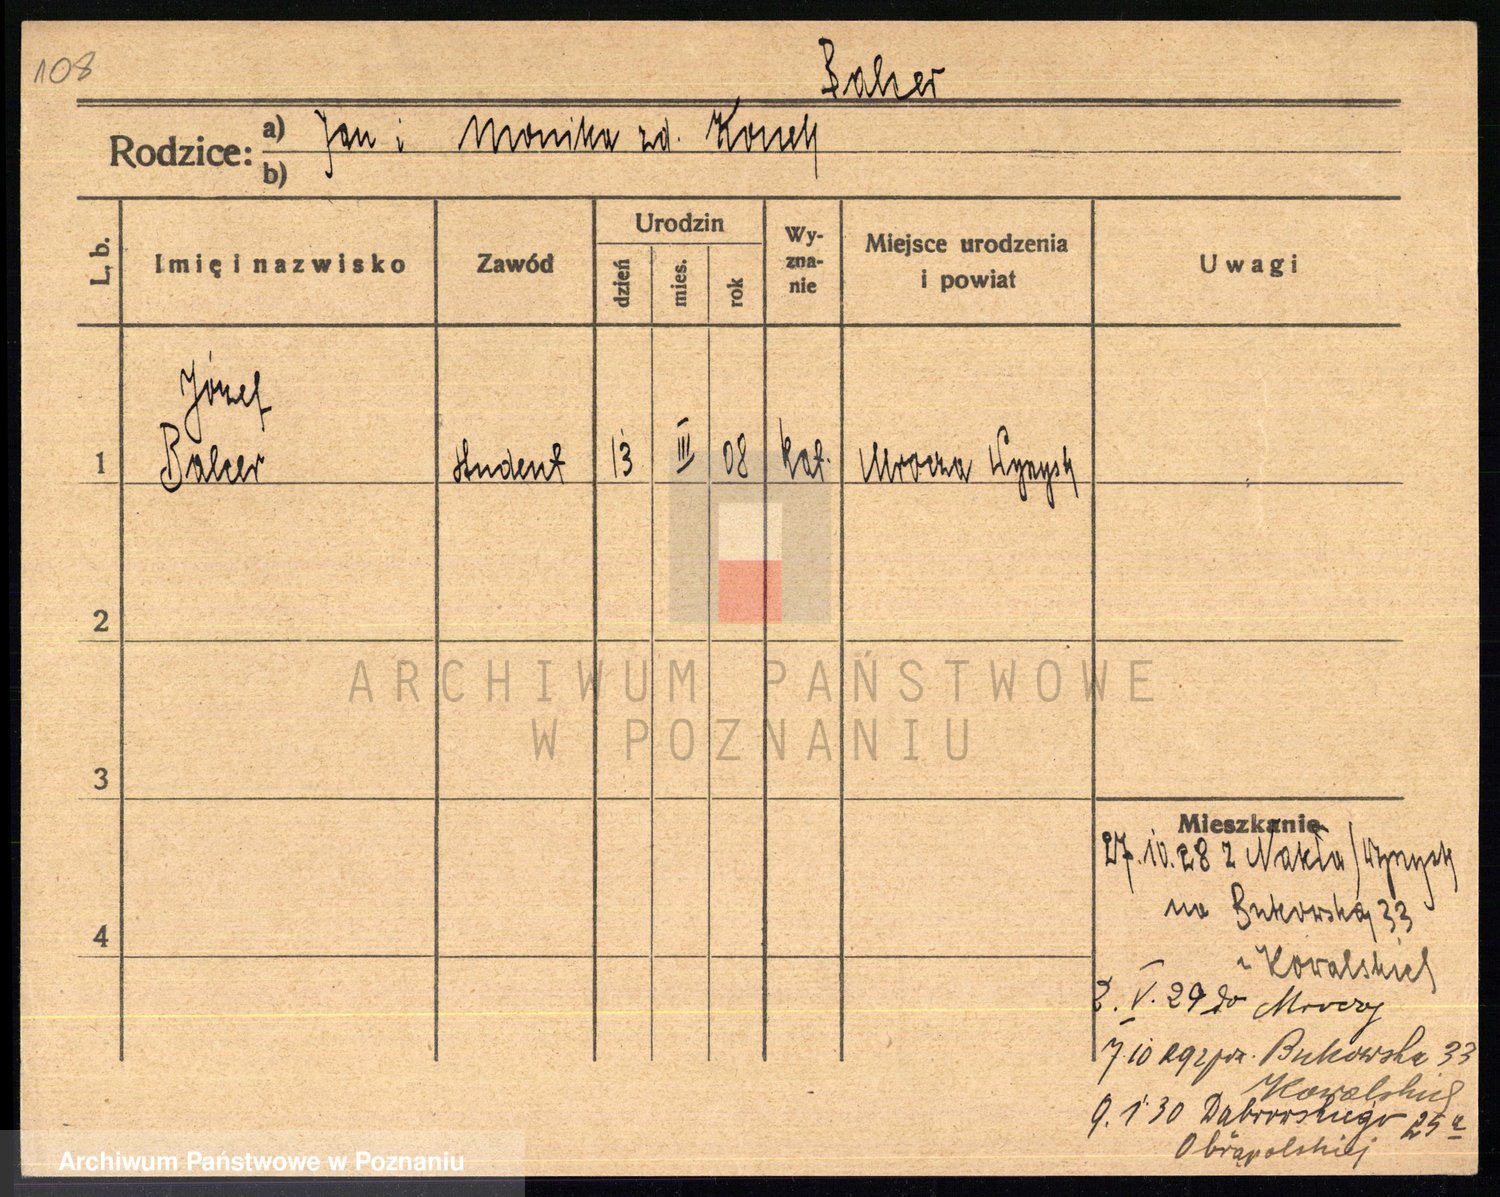 108
Balcer
Rodzice: a) Jan i Monika zd. Konek
b)
L. b. Imię i nazwisko Zawód Urodzin dzień mies. rok Wy-zna-nie Miejsce urodzenia i powiat Uwagi
Józef
1 Balcer student 13 III 08 kat. Mrocza Wyrzysk
2
ARCHIWUM PAŃSTWOWE
W POZNANIU
3
Mieszkanie
27.10.28 z Nakła / Wyrzysk
na Bukowską 33
Kowalskiej
4
2. V. 29 do Mroczy
7 10 29 Bukowska 33
Kowalskiej
9. 1 30 Dąbrowskiego 25a
Archiwum Państwowe w Poznaniu